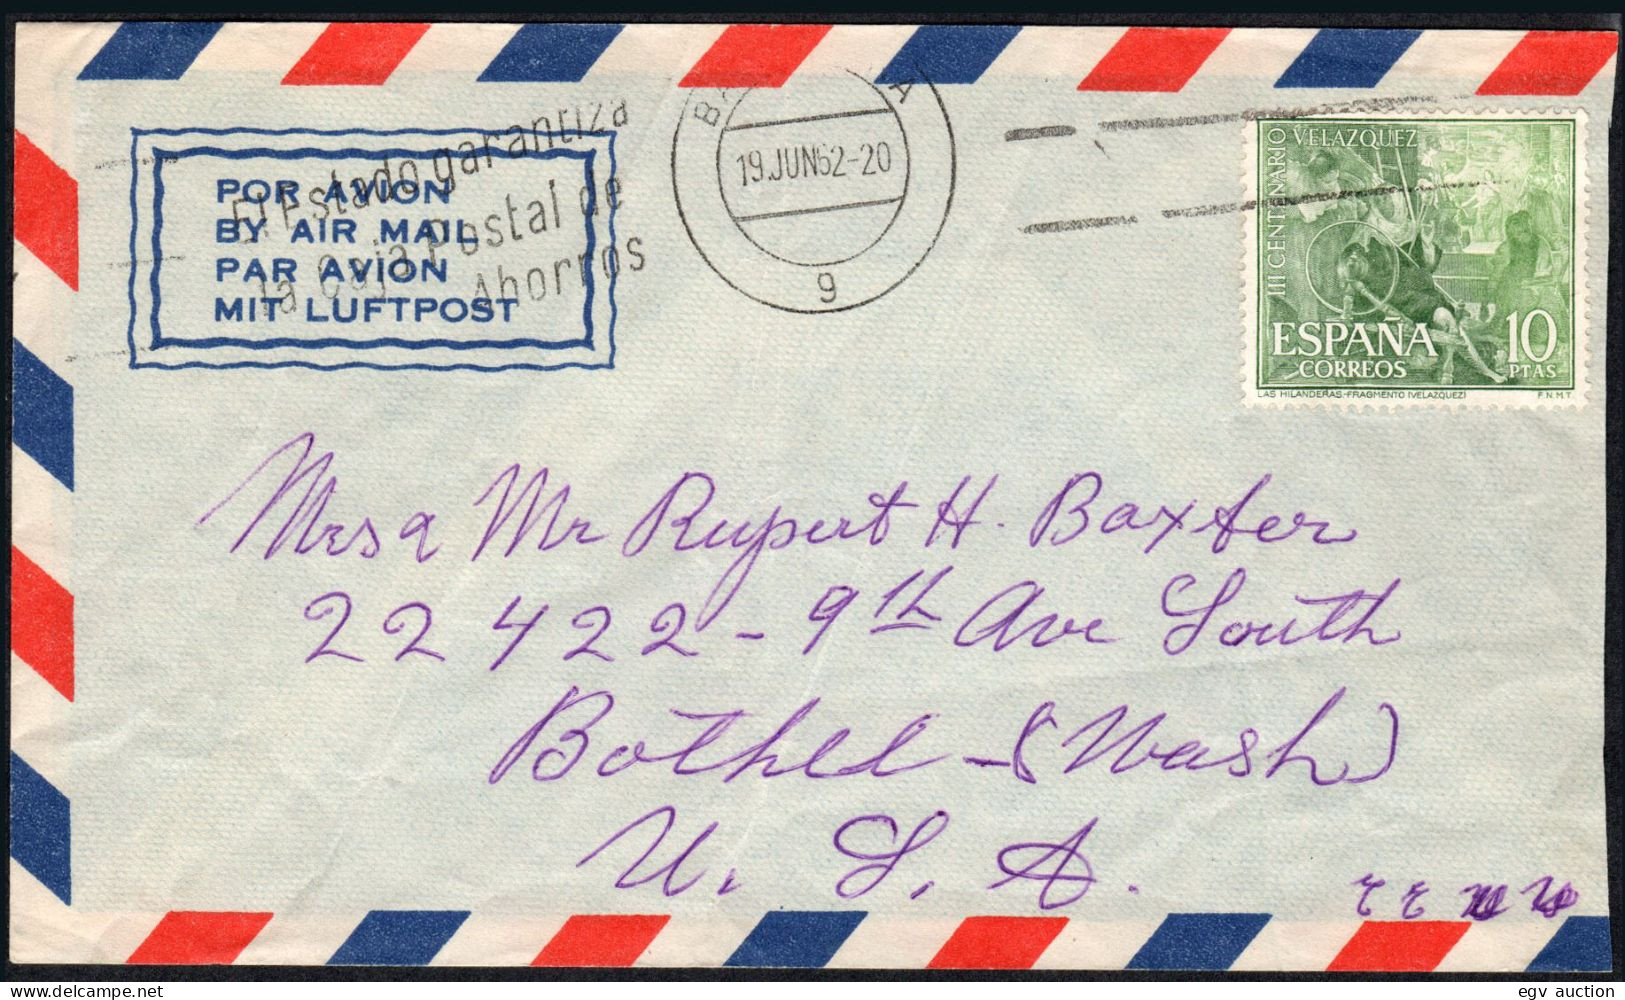 POR AVION
BY AIR MAIL
PAR AVION
MIT LUFTPOST
El Estado garantiza
la Caja Postal de
Ahorros
19.JUN62-20
9
III CENTENARIO VELAZQUEZ
ESPAÑA
CORREOS
10
PTAS
LAS HILANDERAS-FRAGMENTO (VELAZQUEZ)
F.N.M.T.
Mrs a Mr Rupert H. Baxter
22422 - 9th Ave South
Bothel - (Wash)
U. S. A.
E E U U
egv auction